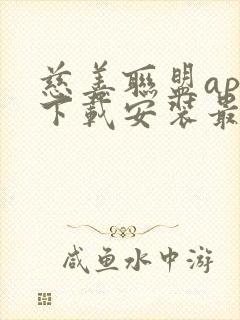 慈善聯盟ap
下載安裝最
咸鱼水中游